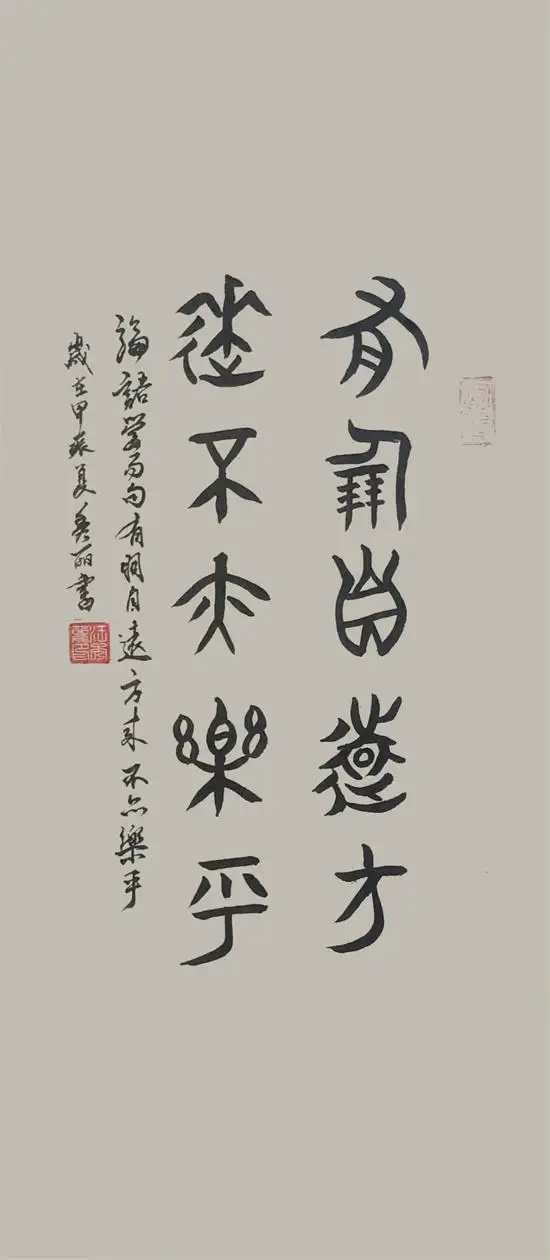 有朋自遠方
來不亦樂乎
論語學而句有朋自遠方來不亦樂乎
歲在甲辰夏 丽書